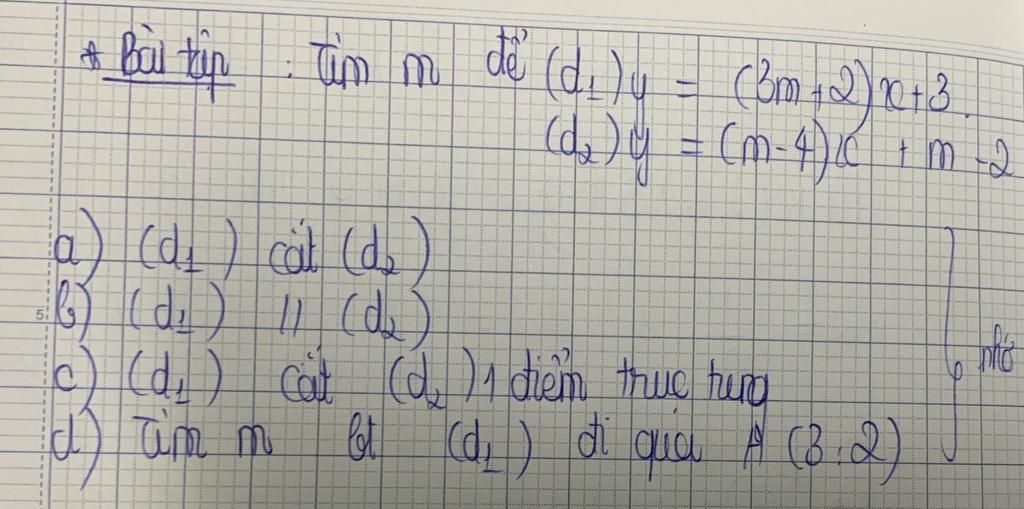 * Bài tập : Tìm m để (d₁) y = (3m+2)x+3.
(d₂) y = (m-4)x + m -2
a) (d₁) cắt (d₂)
b) (d₁) // (d₂)
c) (d₁) cắt (d₂) 1 điểm trục tung
d) Tìm m bt (d₁) đi qua A (3;2)
5